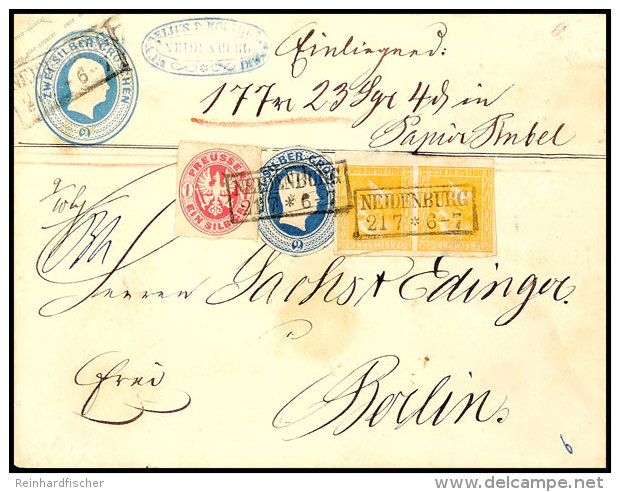 ZWEI SILBER-GROSCHEN
2
NEIDENBURG
Einliegend:
177 rl 23 Sgr 4 d in
Papier Rubel
PREUSSEN
1
EIN SILBERGR
SILBER-GROSCHEN
2
NEIDENBURG
21 7 * 6-
NEIDENBURG
21 7 * 6-7
Herren Sachs & Edinger
frei
Berlin.
6
Reinhardfischer
http://www.delcampe.net